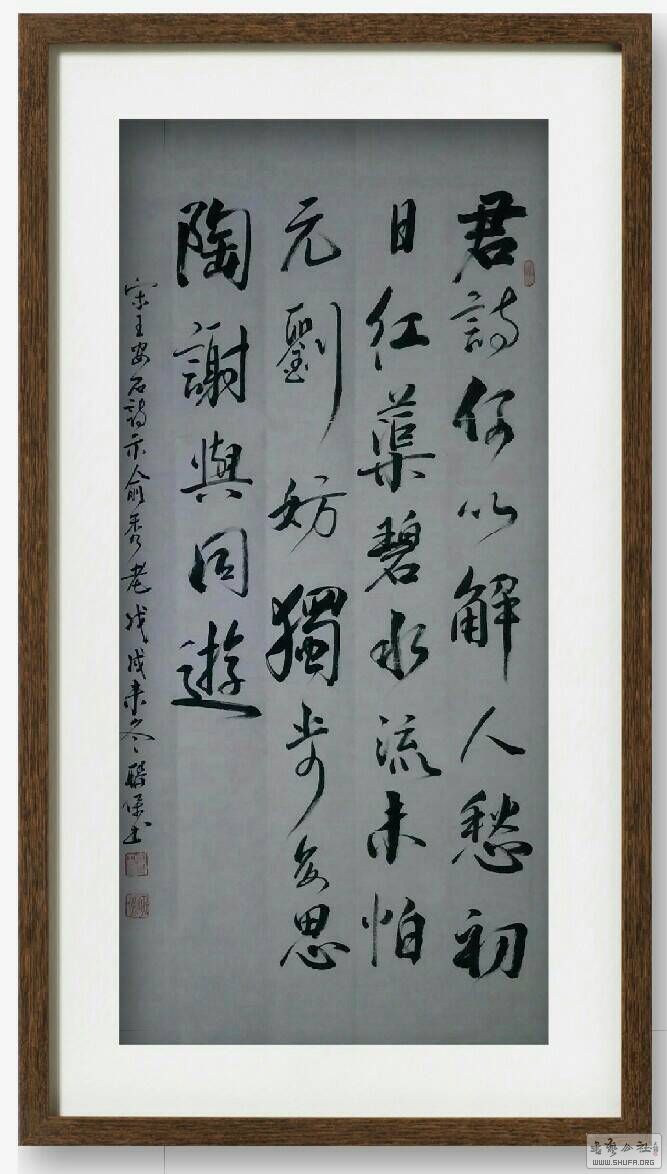 君詩何以解人愁初
日紅蕖碧水流未怕
元劉妨獨步每思
陶謝與同遊
宋王安石詩示俞秀老戊戌末冬聯保书
WWW.SHUFA.ORG